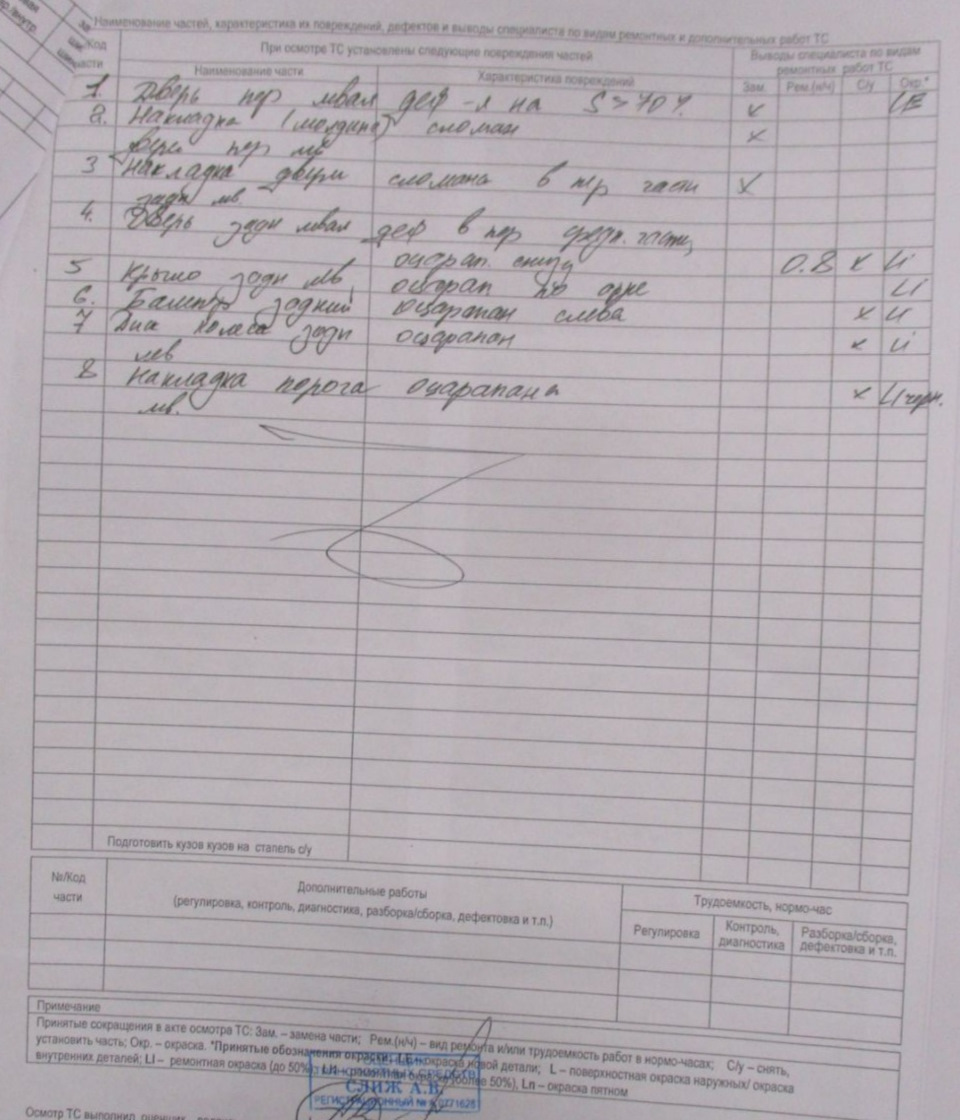 Наименование частей, характеристика их повреждений, дефектов и выводы специалиста по видам ремонтных и дополнительных работ ТС
Код части
При осмотре ТС установлены следующие повреждения частей
Выводы специалиста по видам ремонтных работ ТС
Наименование части Характеристика повреждений Зам. Рем.(н/ч) С/у Окр.*
1 Дверь пер левая деф-я на S>70% x LE
2. Накладка (молдинг) сломан x
двери пер лв
3 Накладка двери сломана в пер части x
задн лв.
4. Дверь задн левая деф в пер средн. части,
оцарап. снизу 0.8 x Li
5 Крыло задн лв, оцарап по арке Li
6. Бампер задний оцарапан слева x Li
7 Диск колеса задн оцарапан x Li
лев
8 Накладка порога оцарапана x Li черн.
лв.
Подготовить кузов кузов на стапель с/у
№/Код части
Дополнительные работы
(регулировка, контроль, диагностика, разборка/сборка, дефектовка и т.п.)
Трудоемкость, нормо-час
Регулировка
Контроль, диагностика
Разборка/сборка, дефектовка и т.п.
Примечание
Принятые сокращения в акте осмотра ТС: Зам. – замена части; Рем.(н/ч) – вид ремонта и/или трудоемкость работ в нормо-часах; С/у – снять,
установить часть; Окр. – окраска. *Принятые обозначения окраски: LE – окраска новой детали; L – поверхностная окраска наружных/ окраска
внутренних деталей; LI – ремонтная окраска (до 50%), (более 50%), Ln – окраска пятном
СЛИЖ А.В.
РЕГИСТРАЦИОННЫЙ №
Осмотр ТС выполнил